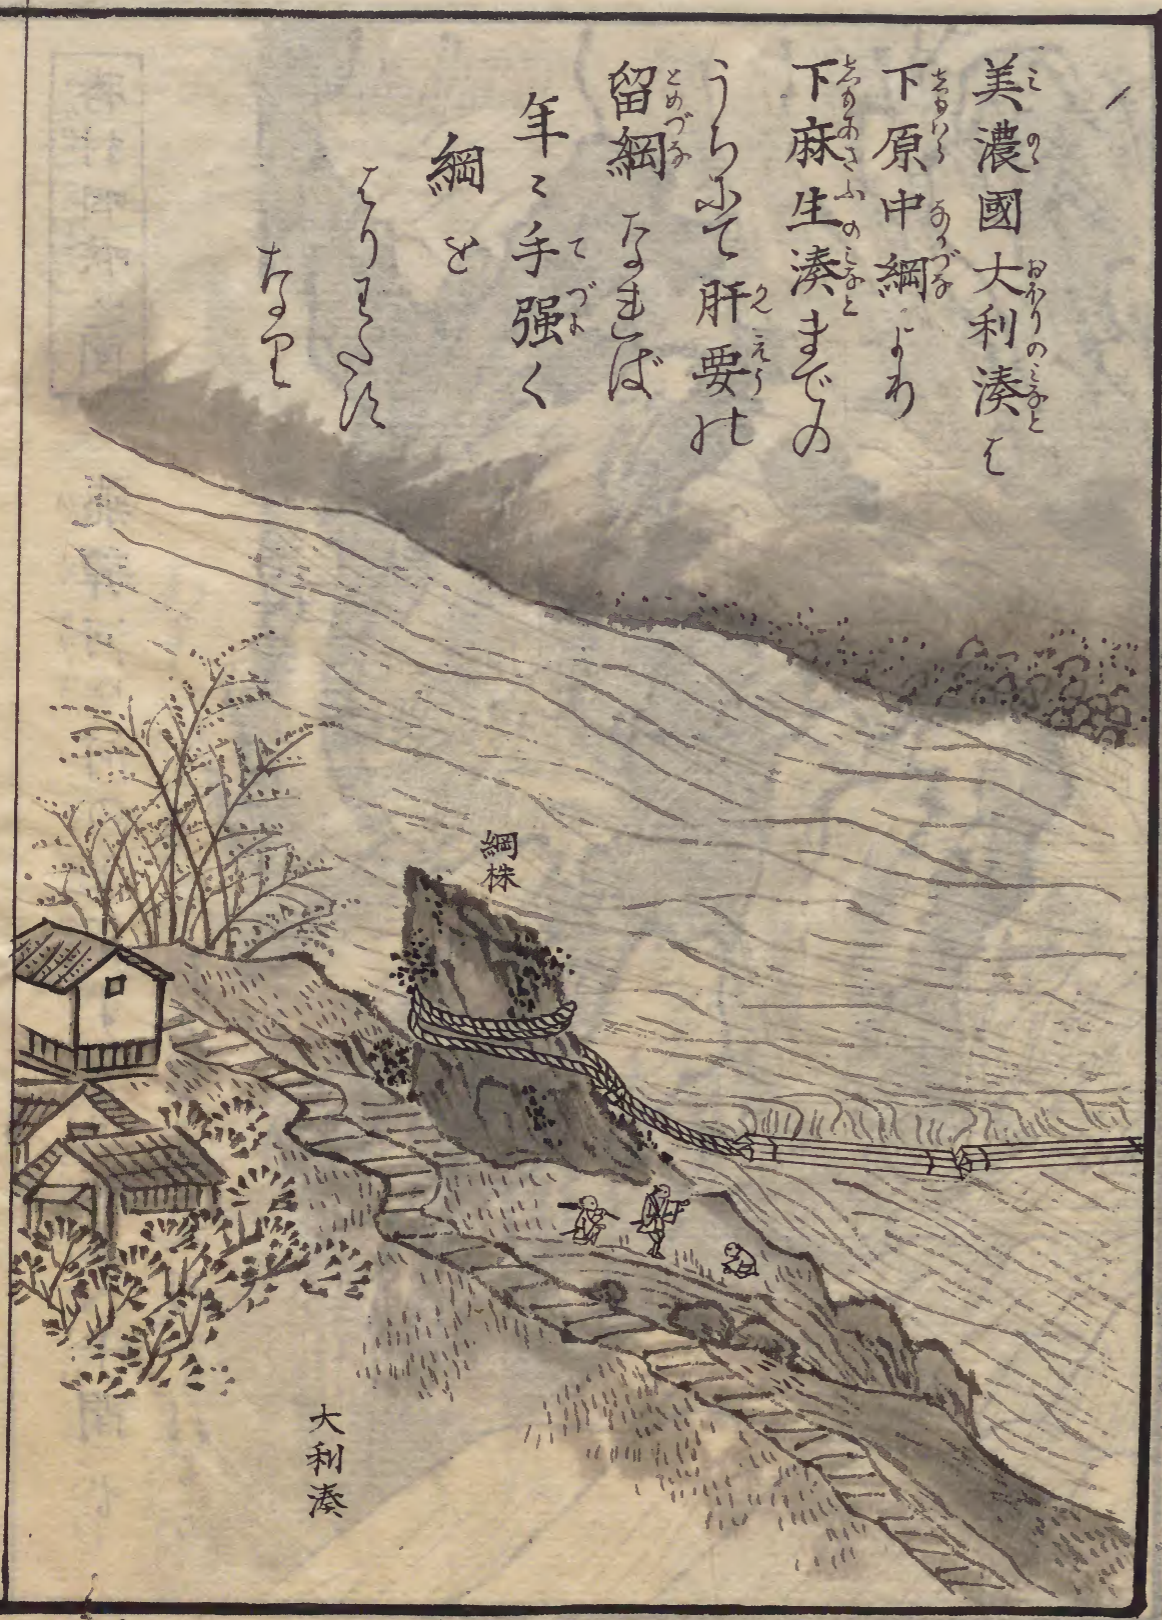 美濃國大利湊は
下原中綱より
下麻生湊までの
うちにて肝要の
留綱なれば
年々手強く
綱を
はりわたす
なり
綱株
大利湊